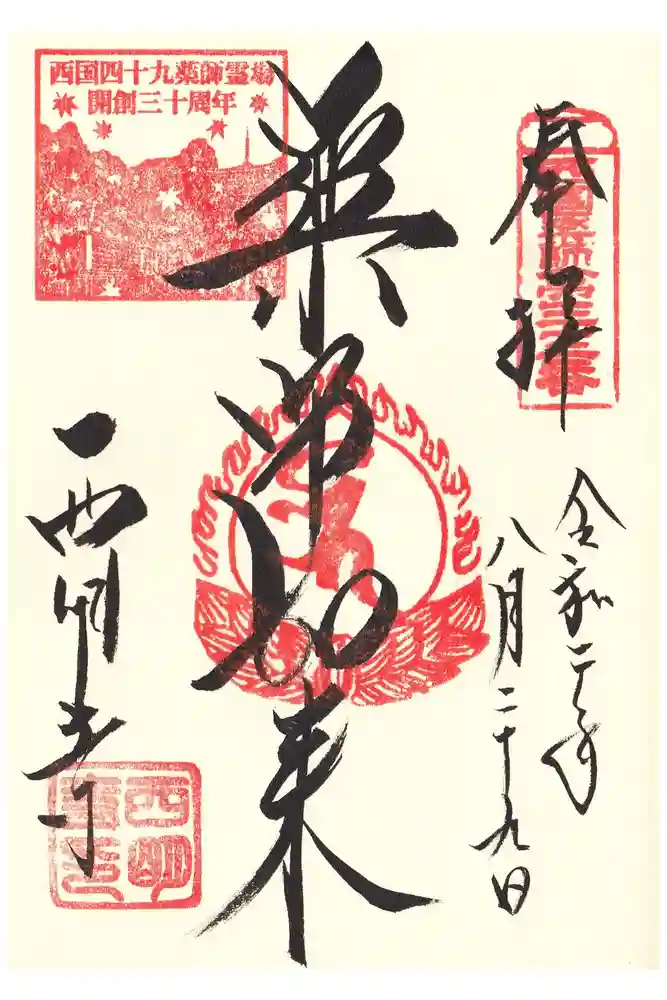 奉拝
令和二年
八月二十九日
薬師如来
西国四十九薬師霊場
開創三十周年
西明寺